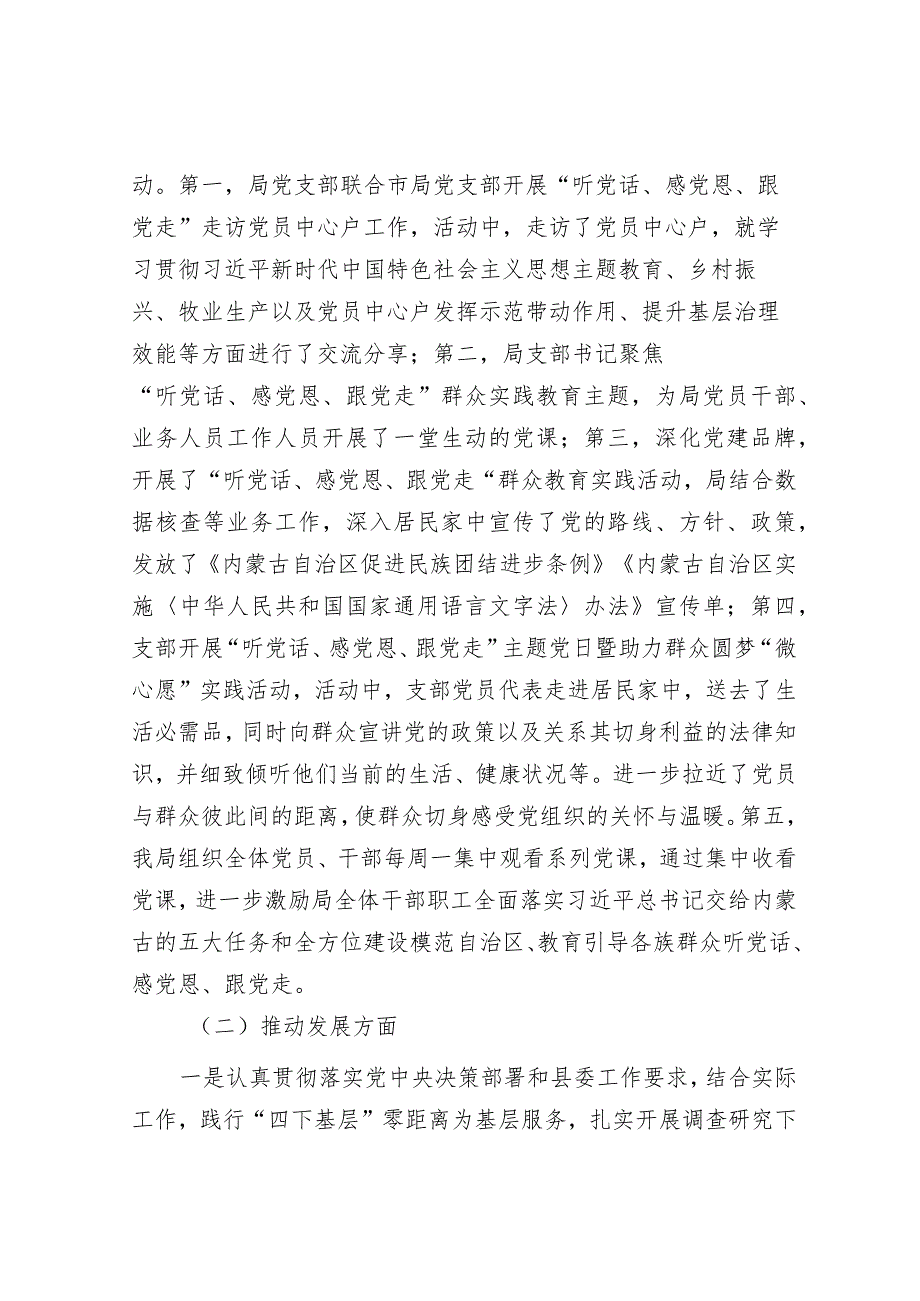 动。第一，局党支部联合市局党支部开展“听党话、感党恩、跟
党走”走访党员中心户工作，活动中，走访了党员中心户，就学
习贯彻习近平新时代中国特色社会主义思想主题教育、乡村振
兴、牧业生产以及党员中心户发挥示范带动作用、提升基层治理
效能等方面进行了交流分享；第二，局支部书记聚焦
“听党话、感党恩、跟党走”群众实践教育主题，为局党员干部、
业务人员工作人员开展了一堂生动的党课；第三，深化党建品牌，
开展了“听党话、感党恩、跟党走“群众教育实践活动，局结合数
据核查等业务工作，深入居民家中宣传了党的路线、方针、政策，
发放了《内蒙古自治区促进民族团结进步条例》《内蒙古自治区实
施〈中华人民共和国国家通用语言文字法〉办法》宣传单；第四，
支部开展“听党话、感党恩、跟党走”主题党日暨助力群众圆梦“微
心愿”实践活动，活动中，支部党员代表走进居民家中，送去了生
活必需品，同时向群众宣讲党的政策以及关系其切身利益的法律知
识，并细致倾听他们当前的生活、健康状况等。进一步拉近了党员
与群众彼此间的距离，使群众切身感受党组织的关怀与温暖。第五，
我局组织全体党员、干部每周一集中观看系列党课，通过集中收看
党课，进一步激励局全体干部职工全面落实习近平总书记交给内蒙
古的五大任务和全方位建设模范自治区、教育引导各族群众听党话、
感党恩、跟党走。
（二）推动发展方面
一是认真贯彻落实党中央决策部署和县委工作要求，结合实际
工作，践行“四下基层”零距离为基层服务，扎实开展调查研究下